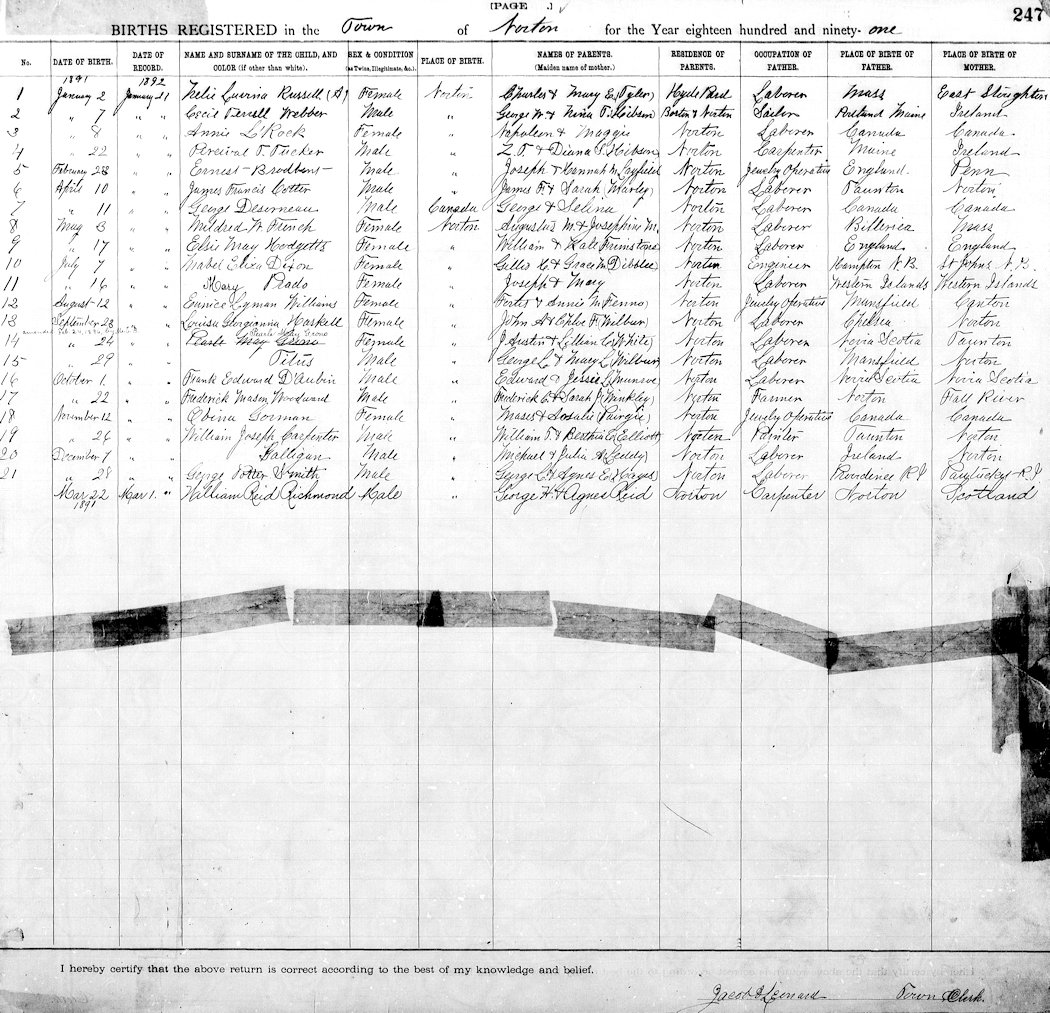 [PAGE .]
247
BIRTHS REGISTERED in the Town of Norton for the Year eighteen hundred and ninety-one
No. DATE OF BIRTH. DATE OF RECORD. NAME AND SURNAME OF THE CHILD, AND COLOR (if other than white). SEX & CONDITION (as Twins, Illegitimate, &c.). PLACE OF BIRTH. NAMES OF PARENTS. (Maiden name of mother.) RESIDENCE OF PARENTS. OCCUPATION OF FATHER. PLACE OF BIRTH OF FATHER. PLACE OF BIRTH OF MOTHER.
1891 1892
1 January 2 January 21 Russell (A) Female Norton Charles & Mary E. (Tyler) Hyde Park Laborer Mass East Stoughton
2 " 7 " " Cecil Webber Male " George W & Nina T. Gibson Boston & Norton Sailor Portland Maine Ireland
3 " 8 " " Annie L'Rock Female " Napoleon & Maggie Norton Laborer Canada Canada
4 " 22 " " Percival T. Tucker Male " Z. T. & Diana S. Norton Carpenter Maine Ireland
5 February 28 " " Ernest Male " Joseph & Hannah M. Norton Jewelry Operative England Penn
6 April 10 " " James Francis Cotter Male " James F. & Sarah Marley) Norton Laborer Taunton Norton
7 " 11 " " George Deserneau Male Canada George & Selina Norton Laborer Canada Canada
8 May 3 " " Mildred W. French Female Norton Augustus M. & Josephine M. Norton Laborer Billerica Mass
9 " 17 " " Elsie May Hodgetts Female " William & Kate Norton Laborer England England
10 July 7 " " Mabel Eliza Dixon Female " Gillis & Grace M. Dibblee Norton Engineer Hampton N.B. St Johns N.B.
11 " 16 " " Mary Prado Female " Joseph & Mary Norton Laborer Western Islands Western Islands
12 August 12 " " Eunice Lyman Williams Female " & Annie M. Fenno) Norton Jewelry Operative Mansfield Canton
13 September 23 " " Louisa Georgianna Haskell Female " John A & Chloe F. (Wilbur) Norton Laborer Chelsea Norton
14 " 24 " " Pearle May Female " J. Austin & Lillian C. (White) Norton Laborer Novia Scotia Taunton
15 " 29 " " Titus Male " George L. & Mary L. (Wilbur) Norton Laborer Mansfield Norton
16 October 1 " " Frank Edward D'Aubin Male " Edward & Jessie (Munroe) Norton Laborer Novia Scotia Novia Scotia
17 " 22 " " Frederick Mason Woodward Male " Frederick C. & Sarah J. (Winkley) Norton Farmer Norton Fall River
18 November 12 " " Obina Female " Moses & Rosalie Norton Jewelry Operative Canada Canada
19 " 26 " " William Joseph Carpenter Male " William T. & Berthia C. (Elliott) Norton Painter Taunton Norton
20 December 7 " " Halligan Male " Michael & Julia A. (Leddy) Norton Laborer Ireland Norton
21 " 28 " " George Potter Smith Male " George C. & Agnes E. (Hayes) Norton Laborer Providence R.I. R.I
Mar 22 Mar 1. " William Reid Richmond Male " George H. & Agnes Reid Norton Carpenter Norton Scotland
1891
I hereby certify that the above return is correct according to the best of my knowledge and belief.
Jacob Leonard Town Clerk.